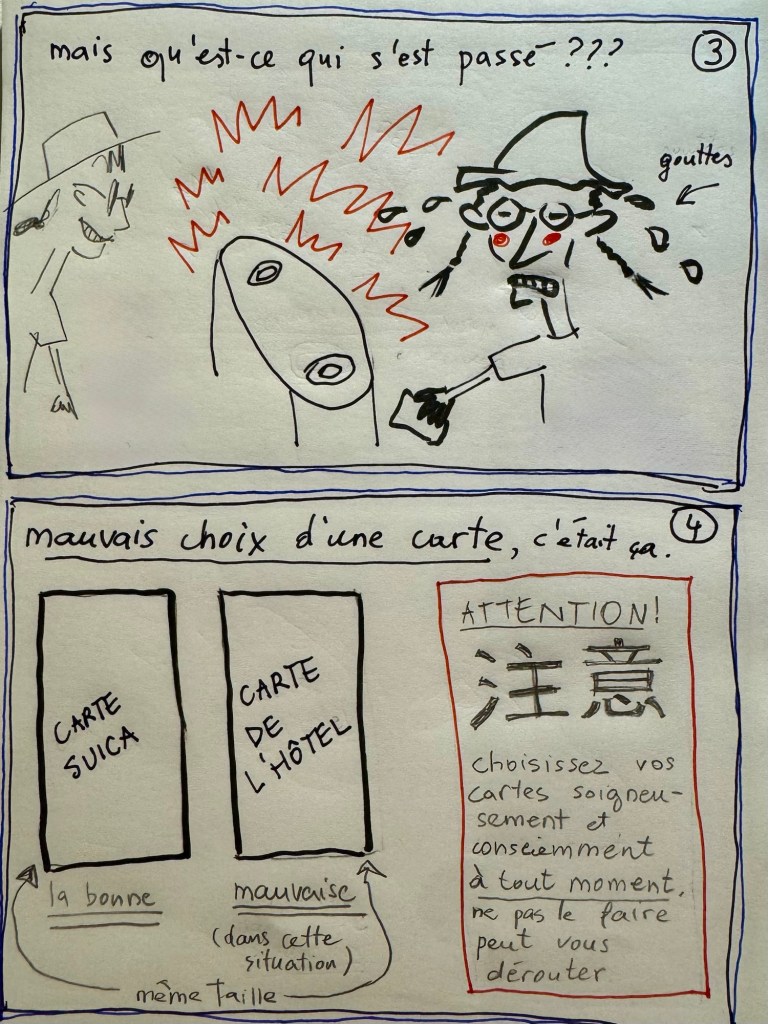 mais qu'est-ce qui s'est passé ???
3
gouttes
mauvais choix d'une carte, c'était ça.
4
CARTE
SUICA
CARTE
DE
L'HÔTEL
la bonne
mauvaise
(dans cette
situation)
même taille
ATTENTION!
注意
choisissez vos
cartes soigneu-
sement et
consciemment
à tout moment,
ne pas le faire
peut vous
dérouter